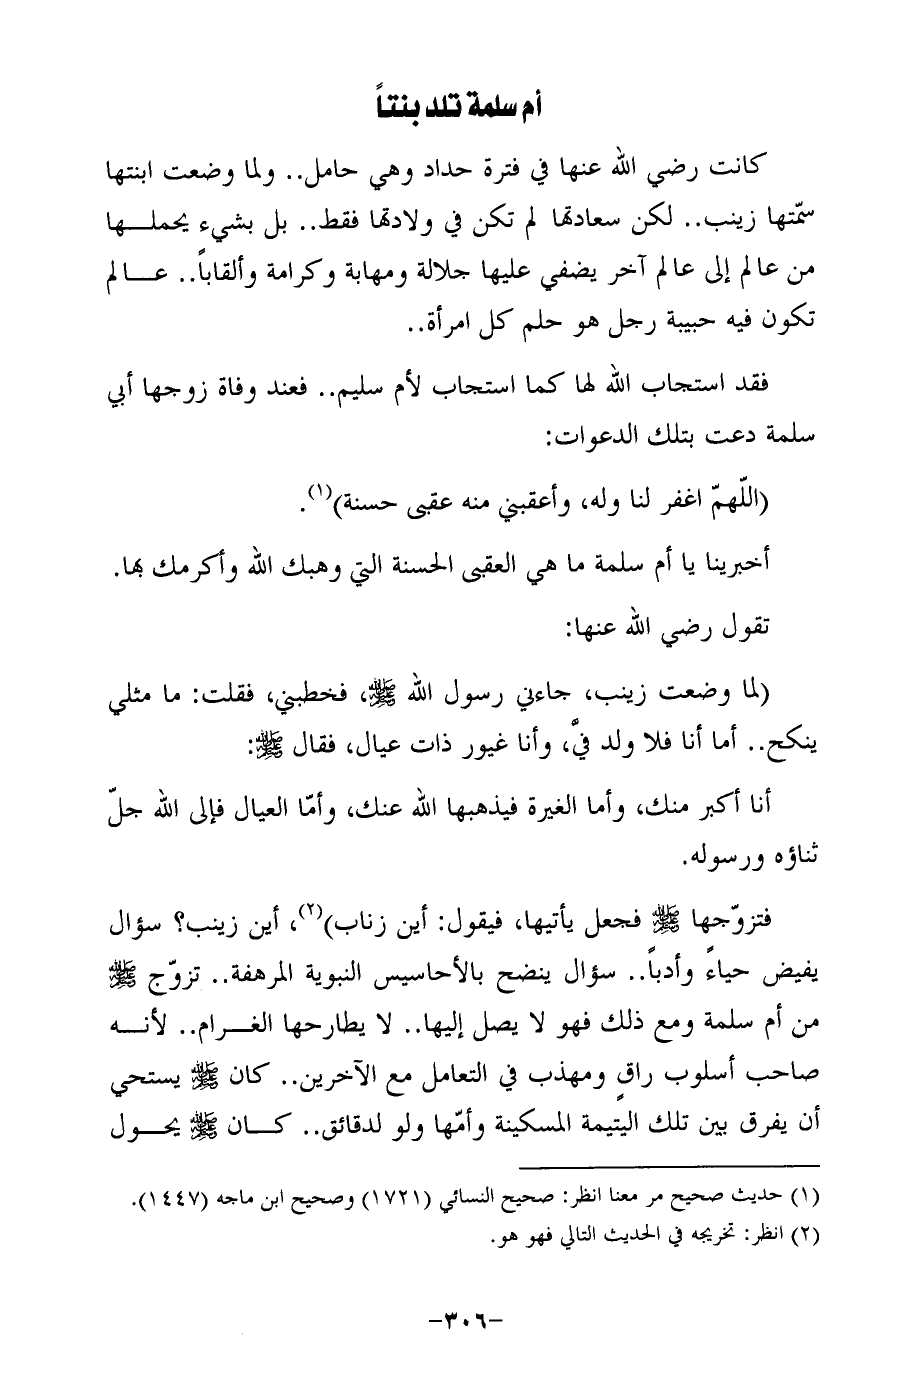 أم سلمة تلد بنتاً
كانت رضي الله عنها في فترة حداد وهي حامل.. ولما وضعت ابنتها
سمّتها زينب.. لكن سعادتها لم تكن في ولادتها فقط.. بل بشيء يحملـــها
من عالم إلى عالم آخر يضفي عليها جلالة ومهابة وكرامة وألقاباً.. عـــالم
تكون فيه حبيبة رجل هو حلم كل امرأة..
فقد استجاب الله لها كما استجاب لأم سليم.. فعند وفاة زوجها أبي
سلمة دعت بتلك الدعوات:
(اللّهمّ اغفر لنا وله، وأعقبني منه عقبى حسنة)(١).
أخبرينا يا أم سلمة ما هي العقبى الحسنة التي وهبك الله وأكرمك بها.
تقول رضي الله عنها:
(لما وضعت زينب، جاءني رسول الله ﷺ، فخطبني، فقلت: ما مثلي
ينكح.. أما أنا فلا ولد فيَّ، وأنا غيور ذات عيال، فقال ﷺ:
أنا أكبر منك، وأما الغيرة فيذهبها الله عنك، وأمّا العيال فإلى الله جلّ
ثناؤه ورسوله.
فتزوّجها ﷺ فجعل يأتيها، فيقول: أين زناب)(٢)، أين زينب؟ سؤال
يفيض حياءً وأدباً.. سؤال ينضح بالأحاسيس النبوية المرهفة.. تزوّج ﷺ
من أم سلمة ومع ذلك فهو لا يصل إليها.. لا يطارحها الغـــرام.. لأنـــه
صاحب أسلوب راقٍ ومهذب في التعامل مع الآخرين.. كان ﷺ يستحي
أن يفرق بين تلك اليتيمة المسكينة وأمّها ولو لدقائق.. كـــان ﷺ يحـــول
(١) حديث صحيح مر معنا انظر: صحيح النسائي (١٧٢١) وصحيح ابن ماجه (١٤٤٧).
(٢) انظر: تخريجه في الحديث التالي فهو هو.
-٣٠٦-